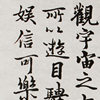 觀宇宙之
所以遊目騁
娛信可樂